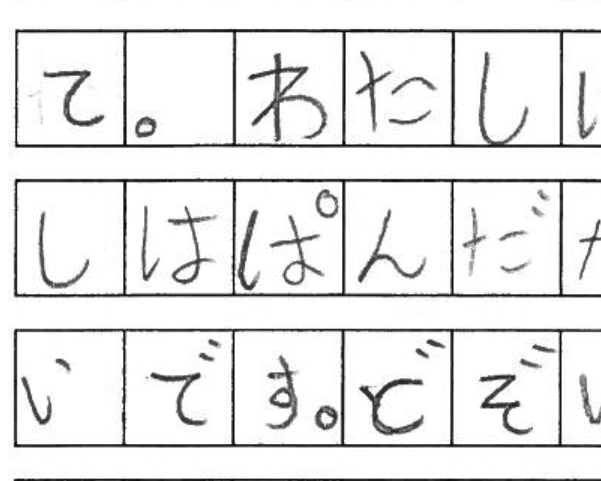 て。わたし
しはぱんだ
いです。どぞ